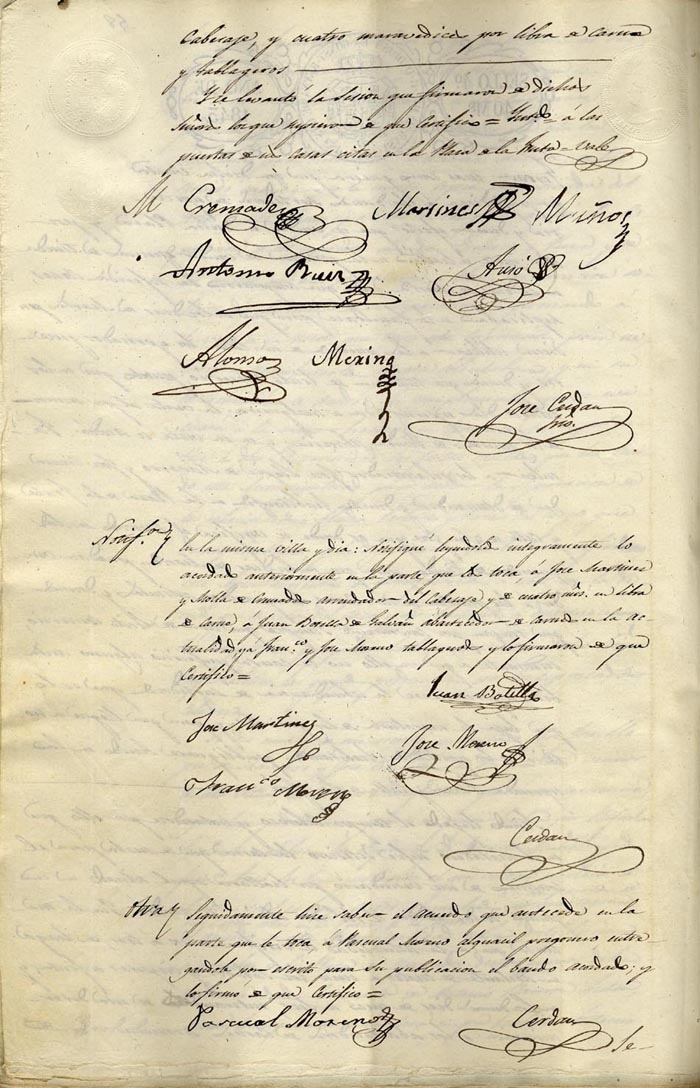 Cabesaje, y cuatro maravedices por libra de carne
y tablageros
Y se levantó la sesion que firmaron de dichos
Señores los que supieron de que certifico =
puertas de sus casas citas en la Plaza de la Fruta = vale
M Cremades Martines Muños
Antonio Ruiz Aucó
Alonso Merino
Jose Cerdan
Srio.
Notif.on En la misma villa y dia: Notifiqué leyendole integramente lo
acordado anteriormente en la parte que le toca a Jose Martinez
y Molla de Cremades arrendador del Cabesaje y de cuatro mrs. en libra
de Carne, a Juan Botella de Galvañ abastecedor de carnes en la ac-
tualidad, y á Fran.co y Jose Moreno tablageros y lo firmaron de que
Certifico =
Juan Botella
Jose Martinez
Jose Moreno
Fran.co Moreno
Cerdan
Otra Seguidamente hice saber el acuerdo que antecede en la
parte que le toca, á Pascual Moreno alguacil pregonero entre-
gandole por escrito para su publicacion el bando acordado; y
lo firmó de que Certifico =
Pascual Moreno Cerdan
Se-